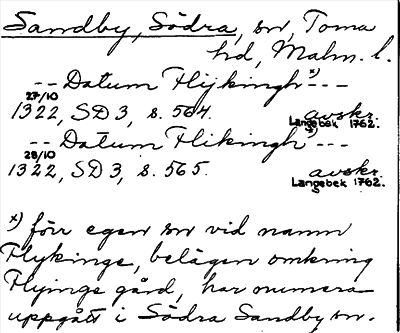 Sandby, Södra, sn, Torna
hd, Malm. l.
-- Datum Flijkingh x) ---
27/10
1322, SD 3, s. 564. avskr.
Langebek 1762.
-- Datum Flikingh x) ---
28/10
1322, SD 3, s. 565. avskr.
Langebek 1762.
x) förr egen sn vid namn
Flykinge, belägen omkring
Flyinge gård, har numera
uppgått i Södra Sandby sn.